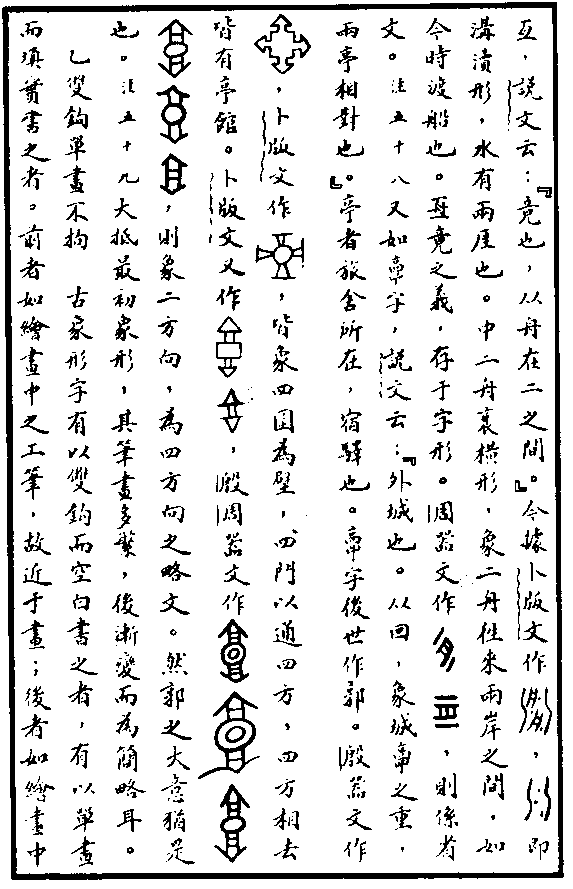 亙，說文云：『竟也，从舟在二之間。』今據卜版文作，即
溝瀆形，水有兩厓也。中二舟裏橫形，象二舟往來兩岸之間，如
今時渡船也。亙竟之義，存于字形。周器文作，則係省
文。注五十八又如𩫖字，說文云：『外城也。从回，象城𩫖之重，
兩亭相對也。』亭者旅舍所在，宿驛也。𩫖字後世作郭。殷器文作
，卜版文作，皆象四圍為壁，四門以通四方，四方相去
皆有亭館。卜版文又作，殷周器文作
，則象二方向，為四方向之略文。然郭之大意猶是
也。注五十九大抵最初象形，其筆畫多繁，後漸變而為簡略耳。
乙雙鉤單畫不拘　古象形字有以雙鉤而空白書之者，有以單畫
而填實書之者。前者如繪畫中之工筆，故近于畫；後者如繪畫中